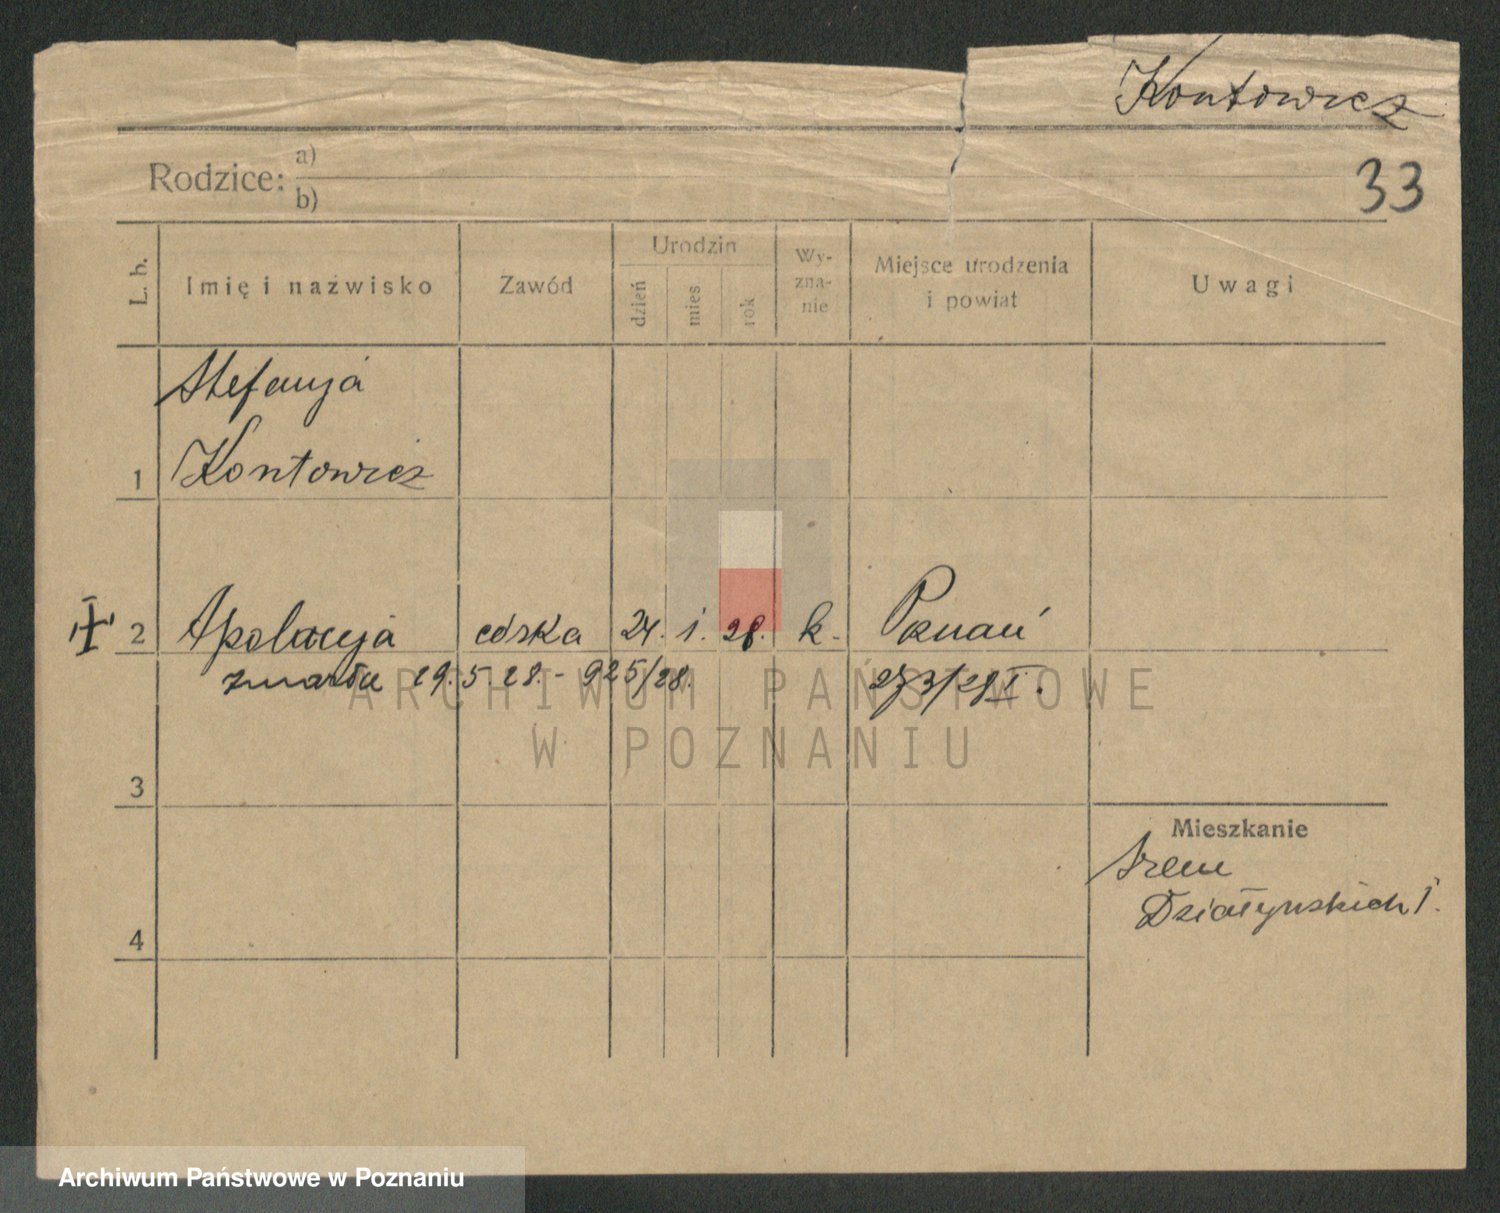 Kontowicz
33
Rodzice: a)
b)
L. b. Imię i nazwisko Zawód Urodzin dzień mies rok Wy-zna-nie Miejsce urodzenia i powiat Uwagi
Stefanja
1 Kontowicz
2 Apolonja córka 24. 1. 28. k. Poznań
zmarła 29.5.28. - 925/28.
3
Mieszkanie
Śrem
Działyńskich 1.
4
ARCHIWUM PAŃSTWOWE
W POZNANIU
Archiwum Państwowe w Poznaniu